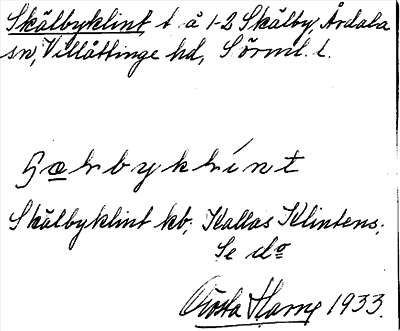 Skälbyklint, t. å 1-2 Skälby, Årdala
sn, Villåttinge hd, Sörml. l.
Skälbyklint kb; Kallas Klintens;
Se do
Gösta Harne 1933.